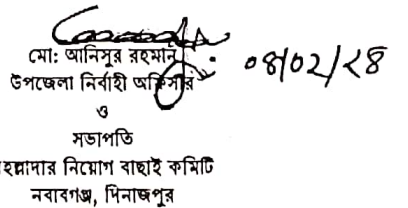 মো: আনিসুর রহমান
উপজেলা নির্বাহী অফিসার
ও
সভাপতি
নিয়োগ বাছাই কমিটি
নবাবগঞ্জ, দিনাজপুর